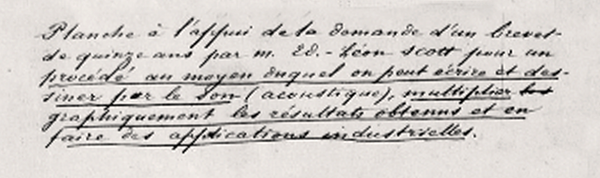 Planche à l'appui de la demande d'un brevet
de quinze ans par M. Ed.-Léon Scott pour un
procédé au moyen duquel on peut écrire et des-
siner par le son (acoustique), multiplier les
graphiquement les résultats obtenus et en
faire des applications industrielles.